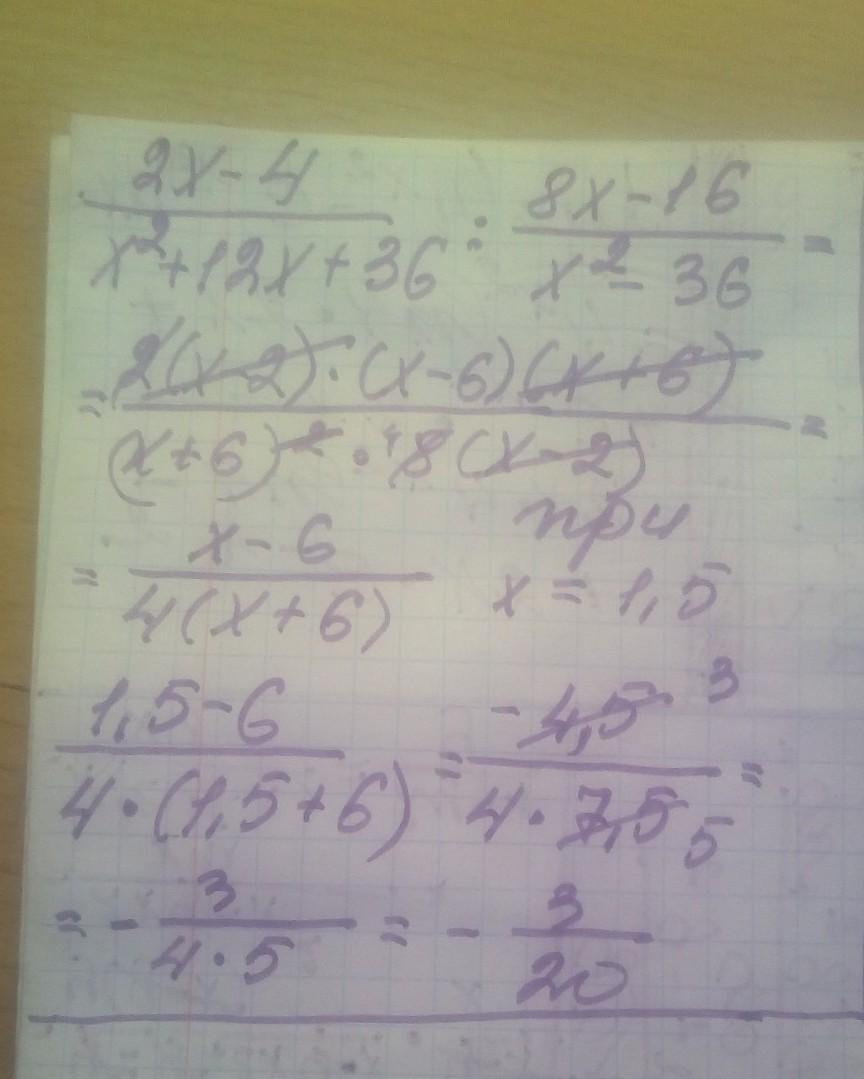 2x-4 / x²+12x+36 : 8x-16 / x²-36 =
= 2(x-2)·(x-6)(x+6) / (x+6)²·4 8(x-2) =
= x-6 / 4(x+6) при x = 1,5
1,5-6 / 4·(1,5+6) = -4,5 3 / 4·7,5 5 =
= - 3 / 4·5 = - 3 / 20